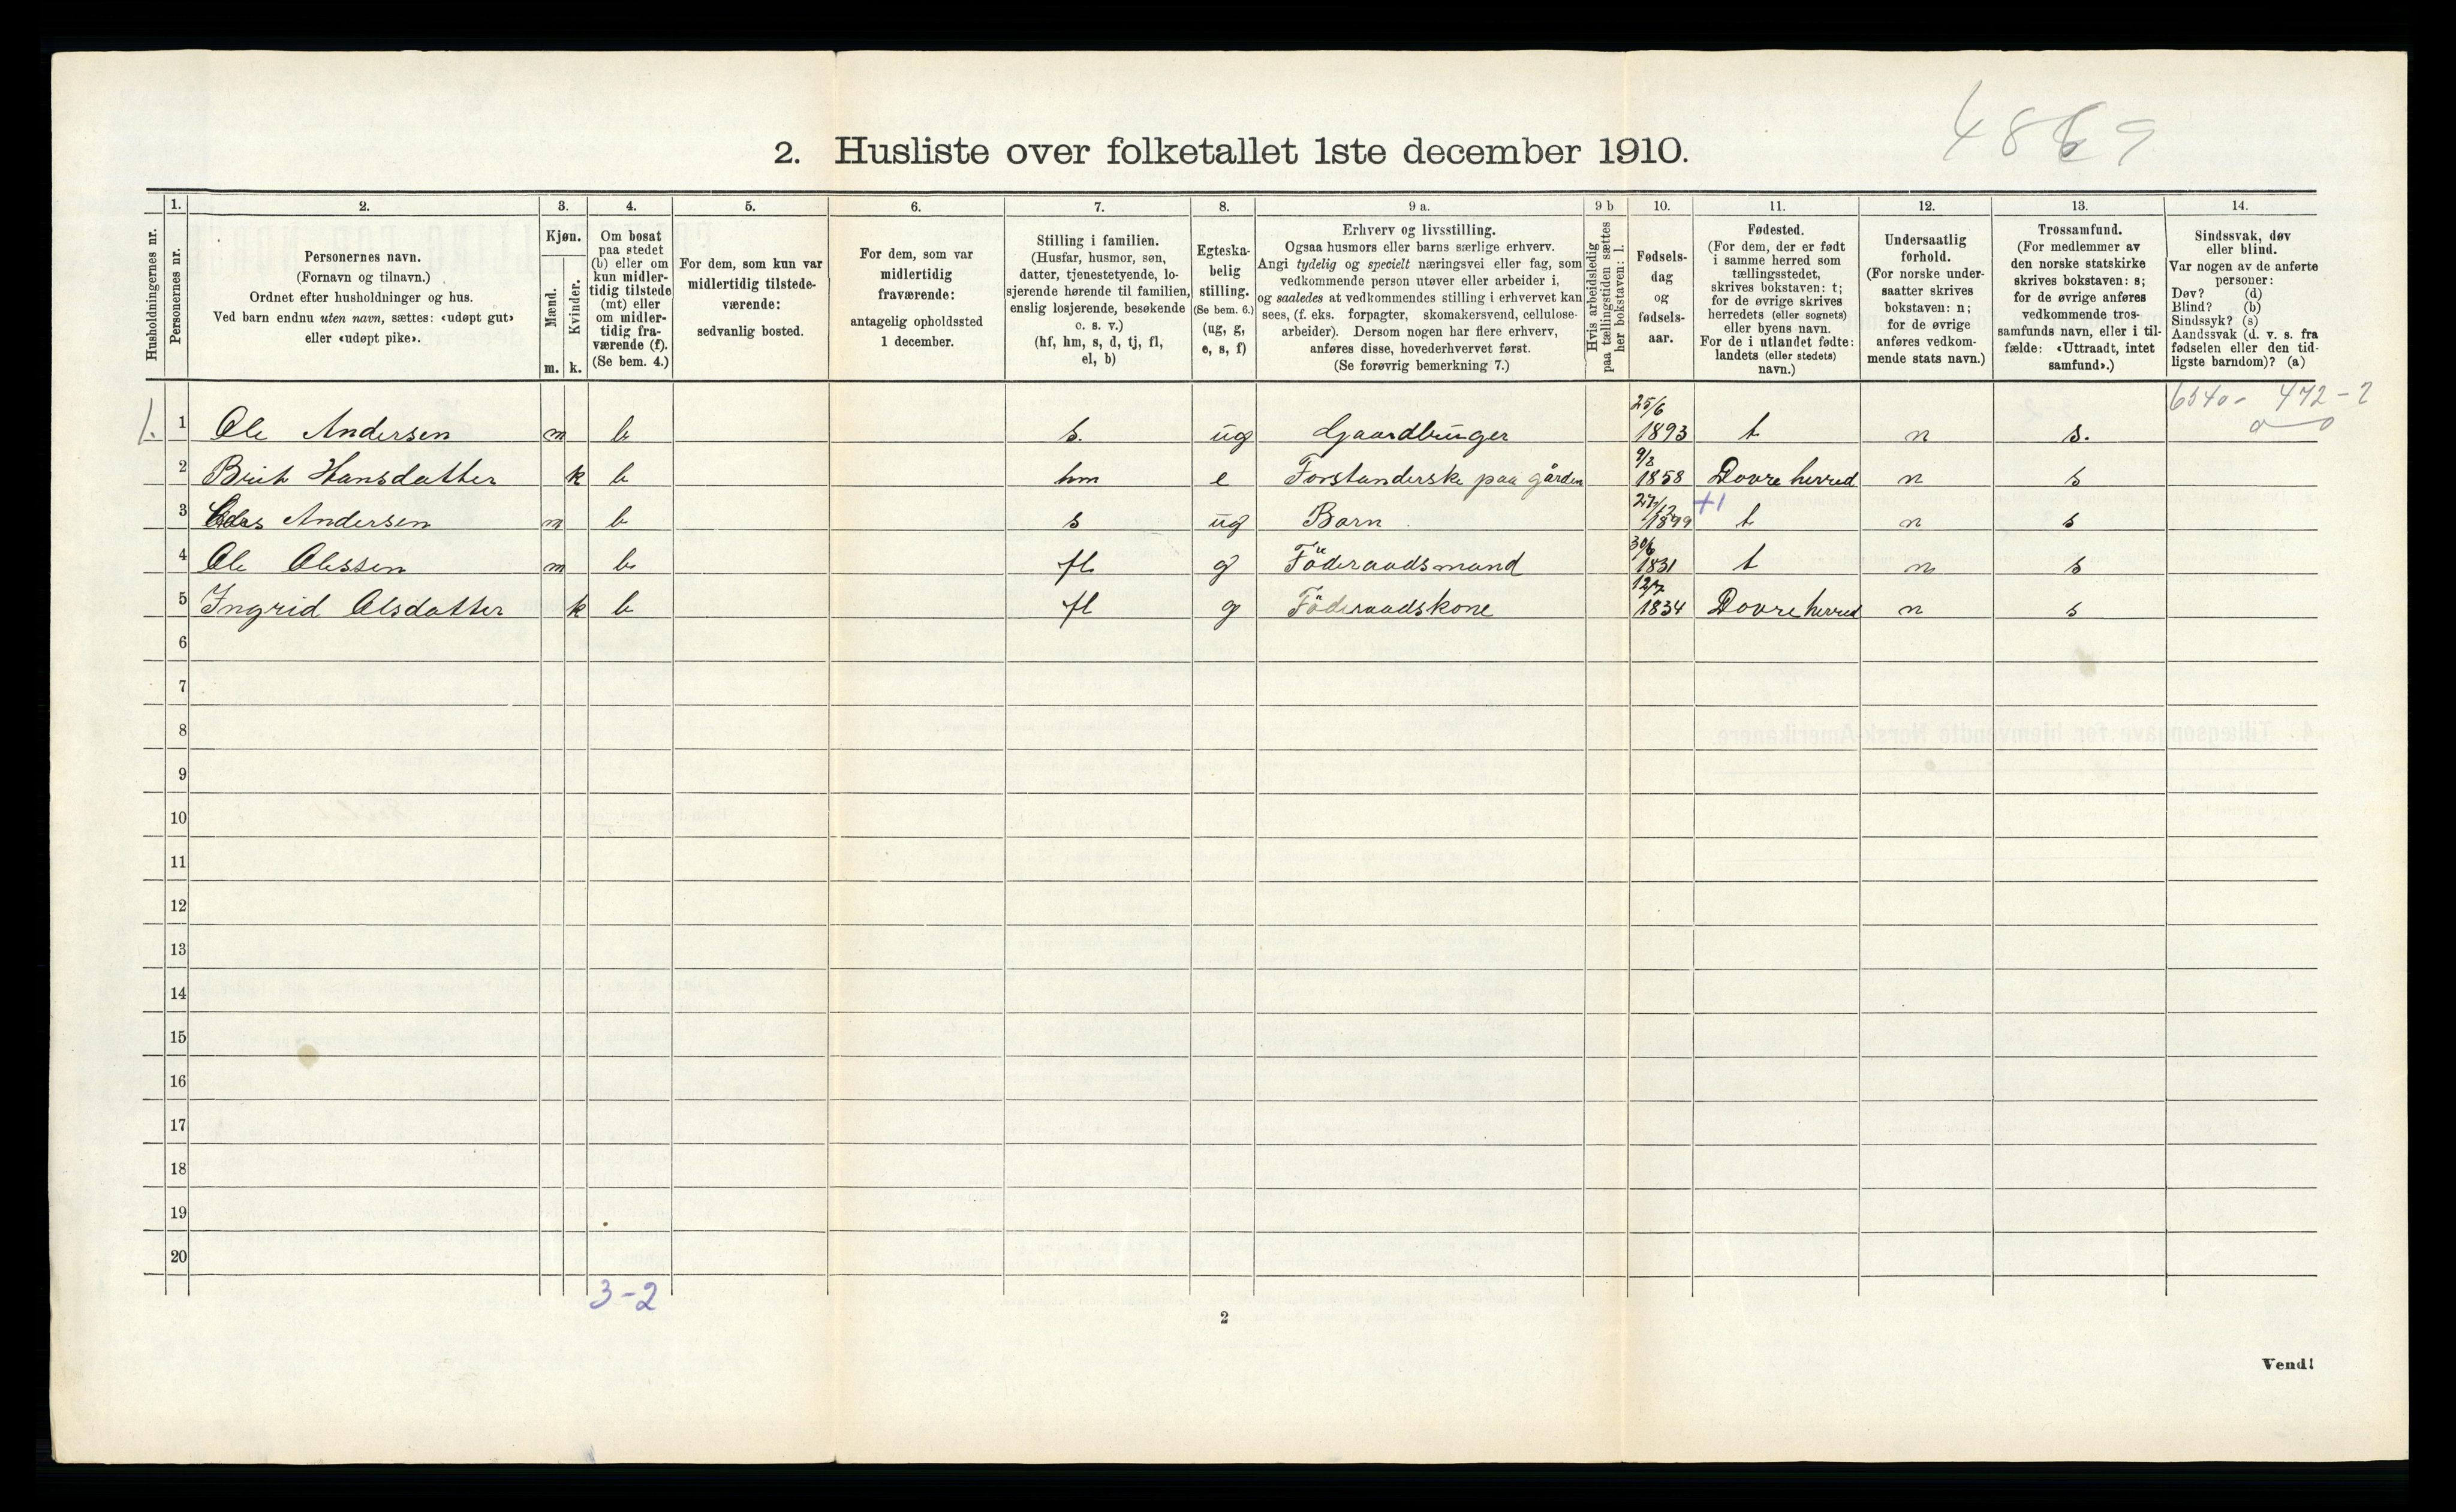 4869
2. Husliste over folketallet 1ste december 1910.
Husholdningernes nr.
1.
Personernes nr.
2.
Personernes navn.
(Fornavn og tilnavn.)
Ordnet efter husholdninger og hus.
Ved barn endnu uten navn, sættes: «udøpt gut»
eller «udøpt pike».
3.
Kjøn.
Mænd.
Kvinder.
m. k.
4.
Om bosat
paa stedet
(b) eller om
kun midler-
tidig tilstede
(mt) eller
om midler-
tidig fra-
værende (f).
(Se bem. 4.)
5.
For dem, som kun var
midlertidig tilstede-
værende:
sedvanlig bosted.
6.
For dem, som var
midlertidig
fraværende:
antagelig opholdssted
1 december.
7.
Stilling i familien.
(Husfar, husmor, søn,
datter, tjenestetyende, lo-
sjerende hørende til familien,
enslig losjerende, besøkende
o. s. v.)
(hf, hm, s, d, tj, fl,
el, b)
8.
Egteska-
belig
stilling.
(Se bem. 6.)
(ug, g,
e, s, f)
9 a.
Erhverv og livsstilling.
Ogsaa husmors eller barns særlige erhverv.
Angi tydelig og specielt næringsvei eller fag, som
vedkommende person utøver eller arbeider i,
og saaledes at vedkommendes stilling i erhvervet kan
sees, (f. eks. forpagter, skomakersvend, cellulose-
arbeider). Dersom nogen har flere erhverv,
anføres disse, hovederhvervet først.
(Se forøvrig bemerkning 7.)
9 b
Hvis arbeidsledig
paa tællingstiden sættes
her bokstaven: l.
10.
Fødsels-
dag
og
fødsels-
aar.
11.
Fødested.
(For dem, der er født
i samme herred som
tællingsstedet,
skrives bokstaven: t;
for de øvrige skrives
herredets (eller sognets)
eller byens navn.
For de i utlandet fødte:
landets (eller stedets)
navn.)
12.
Undersaatlig
forhold.
(For norske under-
saatter skrives
bokstaven: n;
for de øvrige
anføres vedkom-
mende stats navn.)
13.
Trossamfund.
(For medlemmer av
den norske statskirke
skrives bokstaven: s;
for de øvrige anføres
vedkommende tros-
samfunds navn, eller i til-
fælde: «Uttraadt, intet
samfund».)
14.
Sindssvak, døv
eller blind.
Var nogen av de anførte
personer:
Døv? (d)
Blind? (b)
Sindssyk? (s)
Aandssvak (d. v. s. fra
fødselen eller den tid-
ligste barndom)? (a)
1. 1 Ole Andersen m b s. ug Gaardbruger 25/6 1893 t n s.
2 Brit Hansdatter k b hm e Forstanderske paa gården 9/3 1858 Dovre herred n s
3 Andersen m b s ug Barn 27/12 1899 +1 t n s
4 Ole Olessen m b fl g Föderaadsmand 30/6 1831 t n s
5 Ingrid Olsdatter k b fl g Föderaadskone 12/7 1834 Dovre herred n s
6
7
8
9
10
11
12
13
14
15
16
17
18
19
20
3-2
2
Vend!